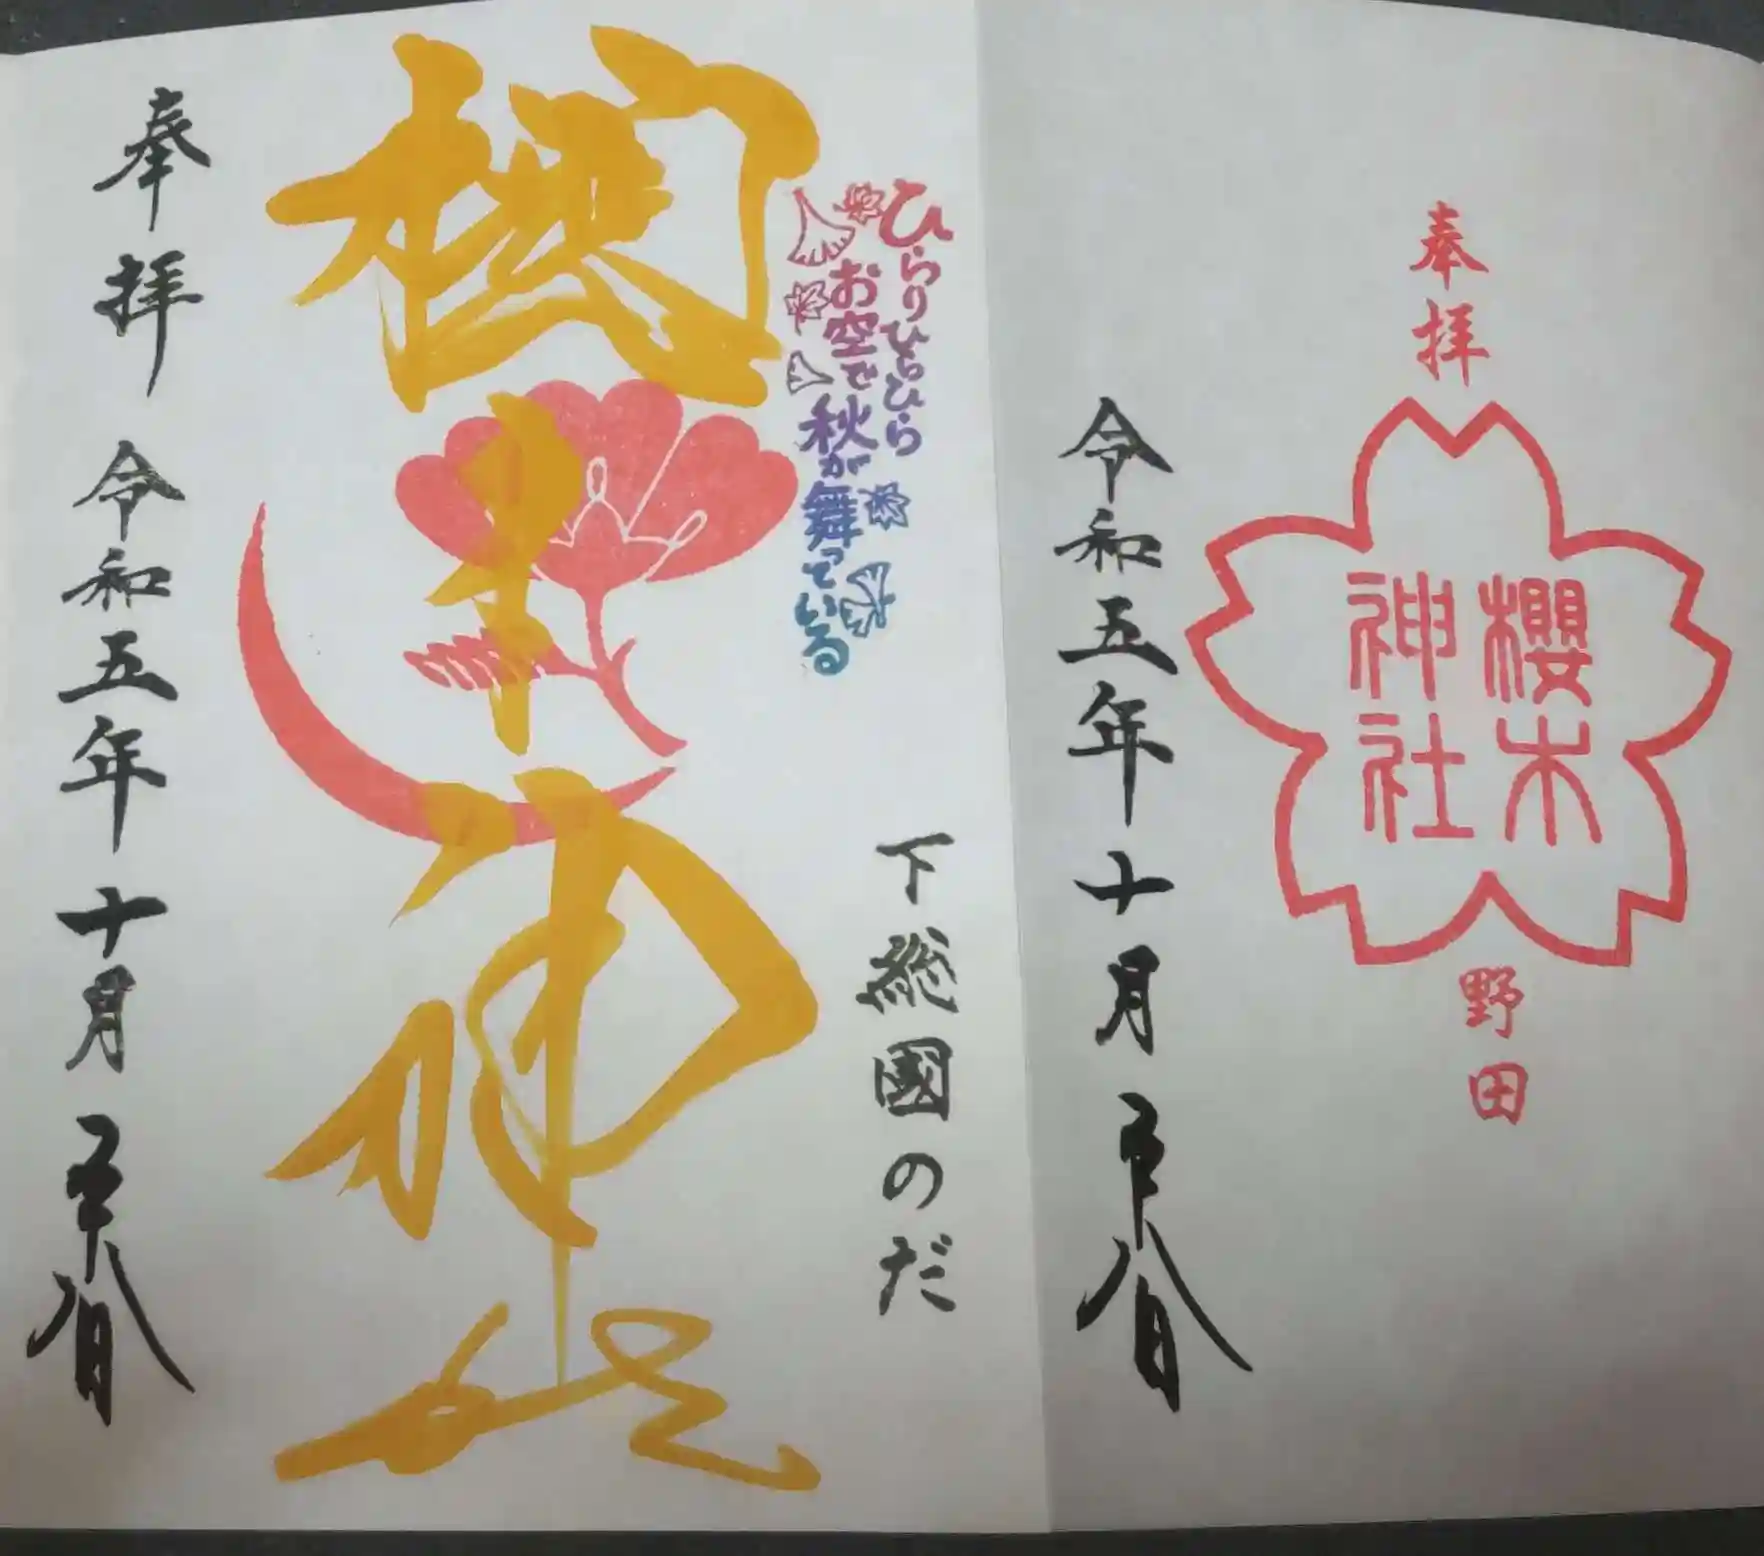 奉拝
櫻木
神社
野田
令和五年十月二十八日
ひらりひらひら
お空で秋が舞っている
下総國のだ
櫻木神社
奉拝 令和五年十月二十八日